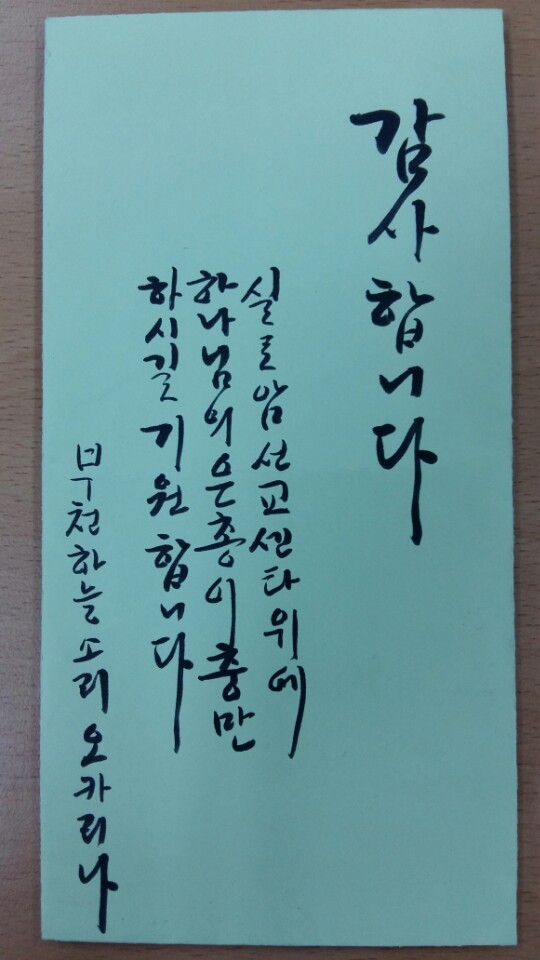 감사합니다
실로암선교센타위에
하나님의은총이충만
하시길 기원합니다
부천하늘소리오카리나